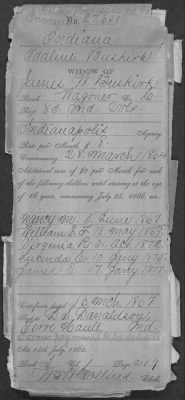 No. 27631
Indiana
Adaline Buskirk
WIDOW OF
James W. Buskirk
Rank Wagoner Co.
Reg. 80 Ind Vols
Indianapolis Agency
Rate per Month, $8
Commencing 28 March 1864
Additional sum of $2 per Month for each
of the following children until arriving at the age
of 16 years, commencing July 25, 1866, viz:
Nancy M. 5 June 1867
William E. F. 18 May 1869
Virginia R. 31 Oct 1872
Lucinda C. 10 Jany 1875
James E. 17 Jany 1877
Certificate dated 16 Mch 1867
D. S. Donaldson
Terre Haute Ind.
Act 14th July, 1862.
Book Vol. Page 219
Clerk.